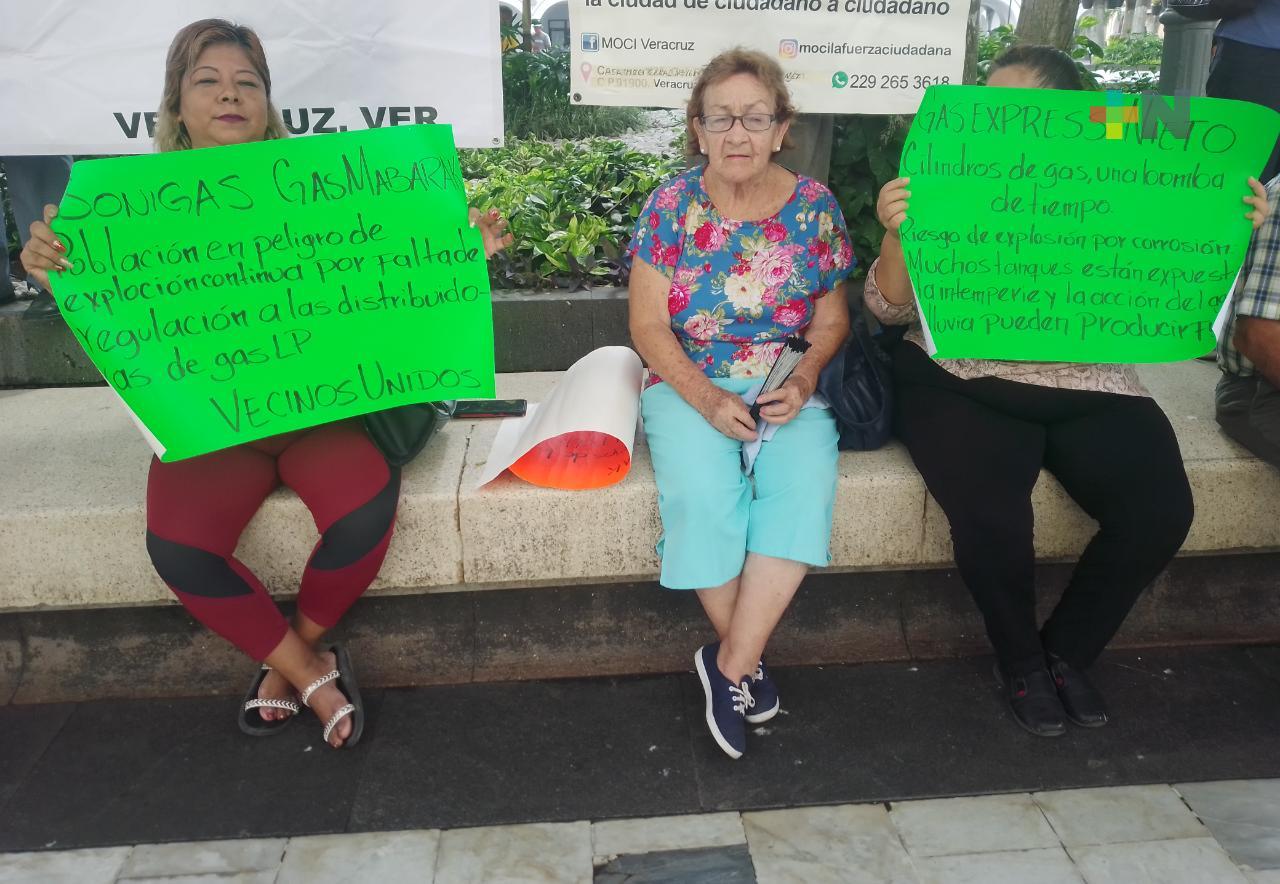 la ciudad de ciudadano a ciudadano
MOCI Veracruz
mocilafuerzaciudadana
C.P. 91900. Veracruz
229 265 3618
UZ, VER
SONIGAS GAS MABARAK
Población en peligro de
exploción continua por Falta de
regulación a las distribuido-
ras de gas LP
VECINOS UNIDOS
GAS EXPRESS NIETO
Cilindros de gas, una bomba
de tiempo.
Riesgo de explosión por corrosión.
Muchos tanques están expuest
la intemperie y la acción del
lluvia pueden producir
TN